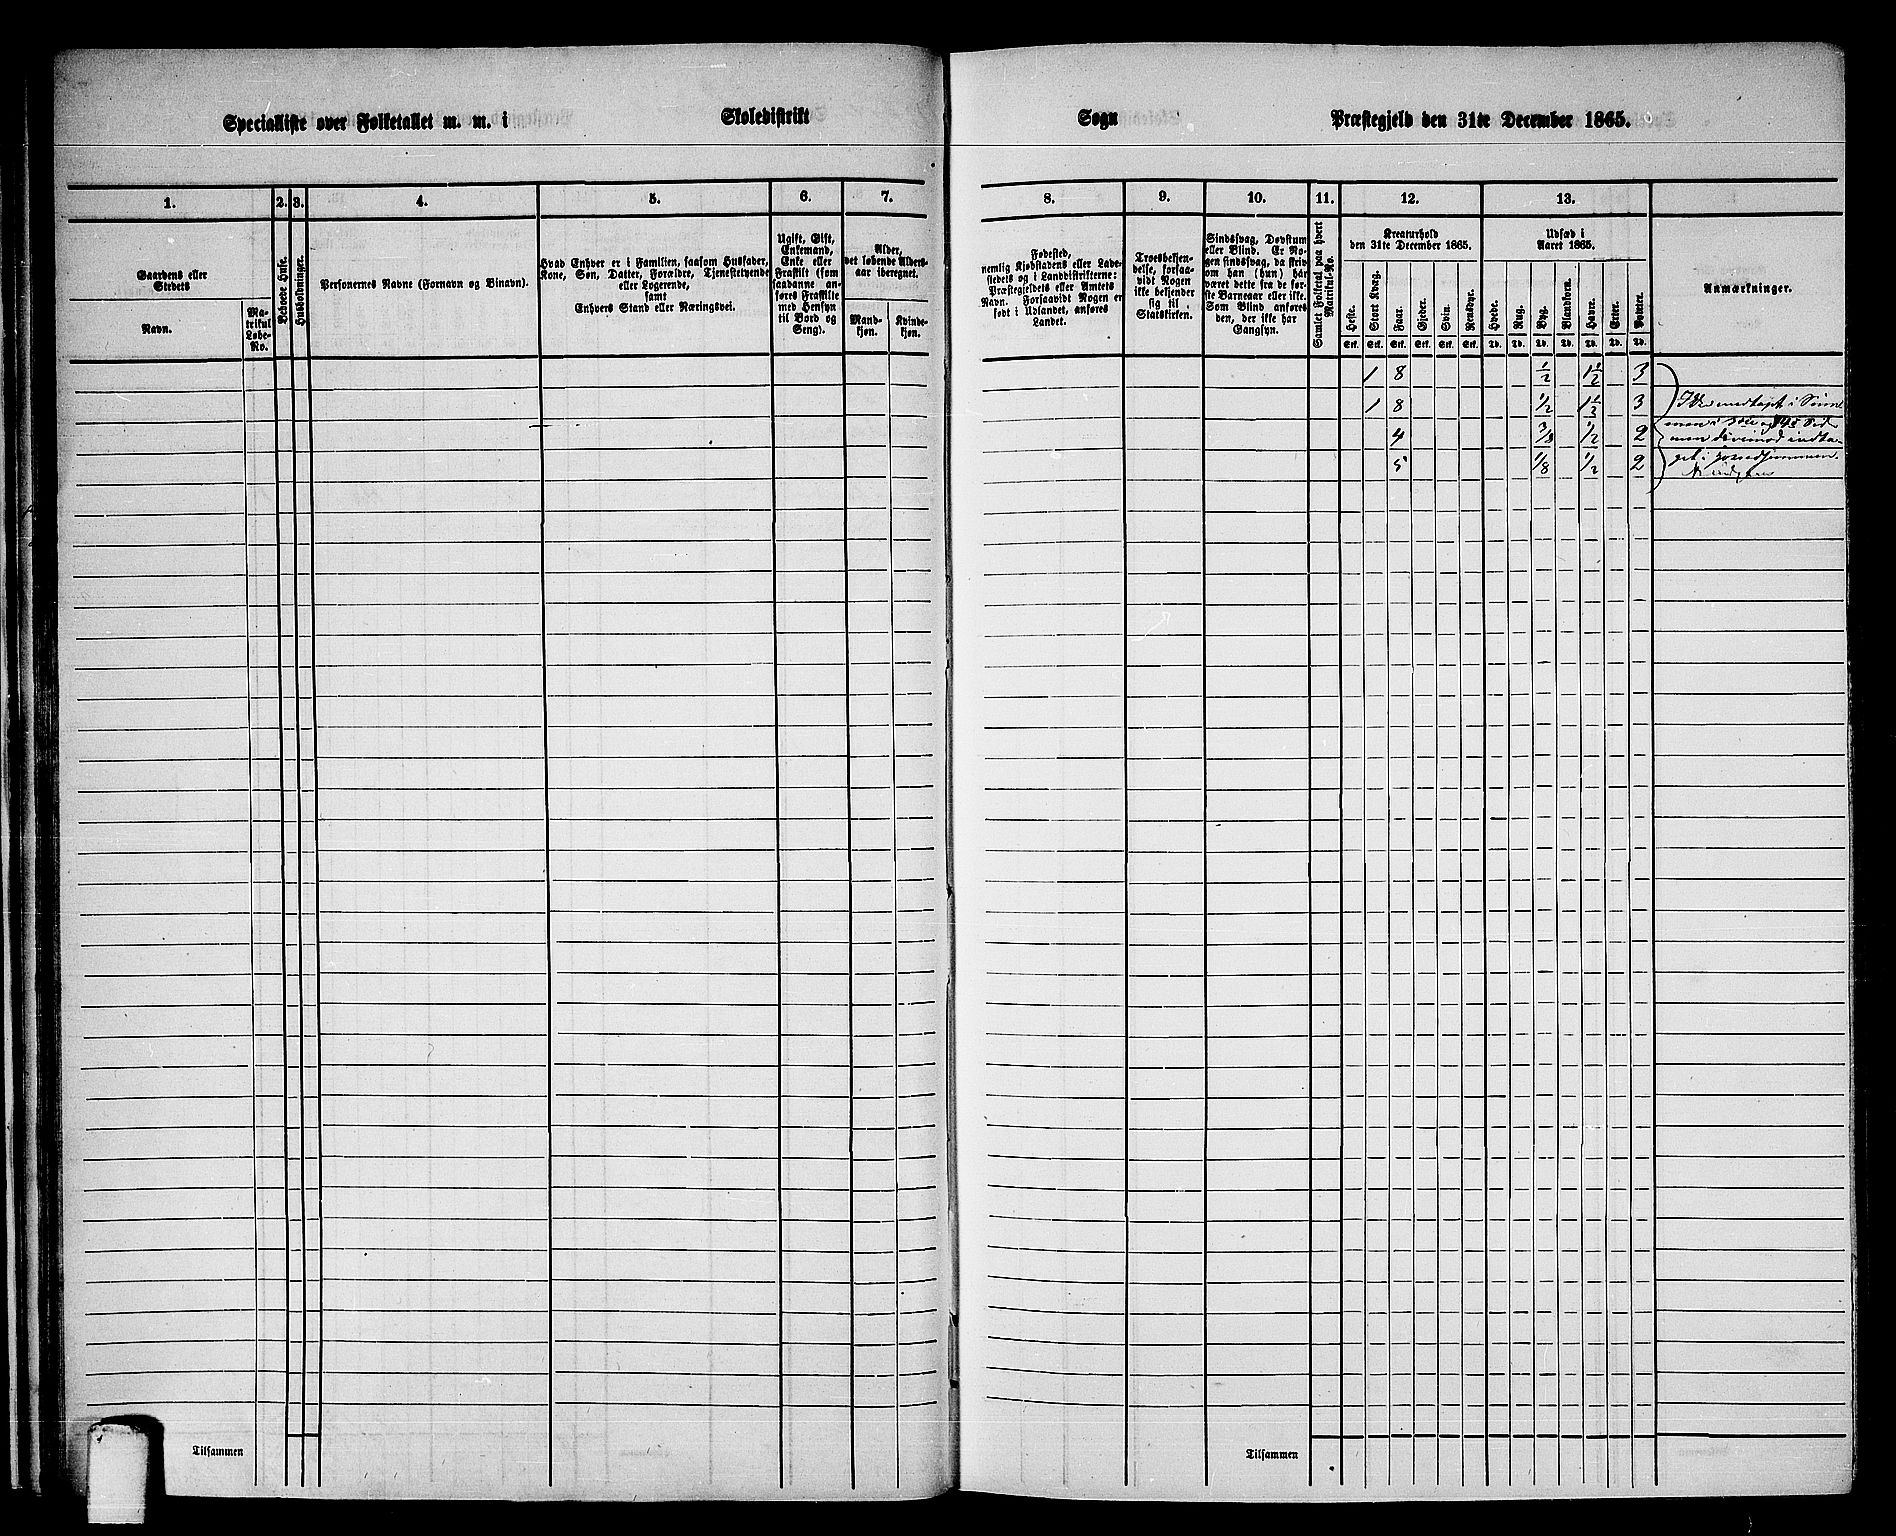 Specialliste over Folketallet m. m. i Skoledistrikt Sogn Præstegjeld den 31te December 1865.
1. 2. 3. 4. 5. 6. 7. 8. 9. 10. 11. 12. 13.
Gaardens eller
Stedets
Navn.
Ma-
trikul
Løbe-
No.
Beboede Huse.
Husholdninger.
Personernes Navne (Fornavn og Binavn).
Hvad Enhver er i Familien, saasom Husfader,
Kone, Søn, Datter, Forældre, Tjenestetyende
eller Logerende,
samt
Enhvers Stand eller Næringsvei.
Ugift, Gift,
Enkemand,
Enke eller
Fraskilt (som
saadanne an-
føres Fraskilte
med Hensyn
til Bord og
Seng).
Alder,
det løbende Alders-
aar iberegnet.
Mand-
kjøn.
Kvinde-
kjøn.
Fødested,
nemlig Kjøbstadens eller Lade-
stedets og i Landdistrikterne:
Præstegjeldets eller Amtets
Navn. Forsaavidt Nogen er
født i Udlandet, anføres
Landet.
Troesbekjen-
delse, forsaa-
vidt Nogen
ikke bekjender
sig til
Statskirken.
Sindssvag, Døvstum
eller Blind. Er No-
gen sindssvag, da skriv
om han (hun) har
været dette fra de før-
ste Barneaar eller ikke.
Som Blind anføres
den, der ikke har
Gangsyn.
Samlet Folketal paa hvert
Matrikul-No.
Kreaturhold
den 31te December 1865.
Heste.
Stort Kvæg.
Faar.
Gjeder.
Svin.
Rensdyr.
Stk. Stk. Stk. Stk. Stk. Stk.
Udsæd i
Aaret 1865.
Hvede.
Rug.
Byg.
Blandkorn.
Havre.
Erter.
Poteter.
Td. Td. Td. Td. Td. Td. Td.
Anmærkninger.
1 8 1/2 1 1/2 3
1 8 1/2 1 1/2 3
4 3/8 1/2 2
5 1/8 1/2 2
Ikke medtaget i
Tilsammen
Tilsammen